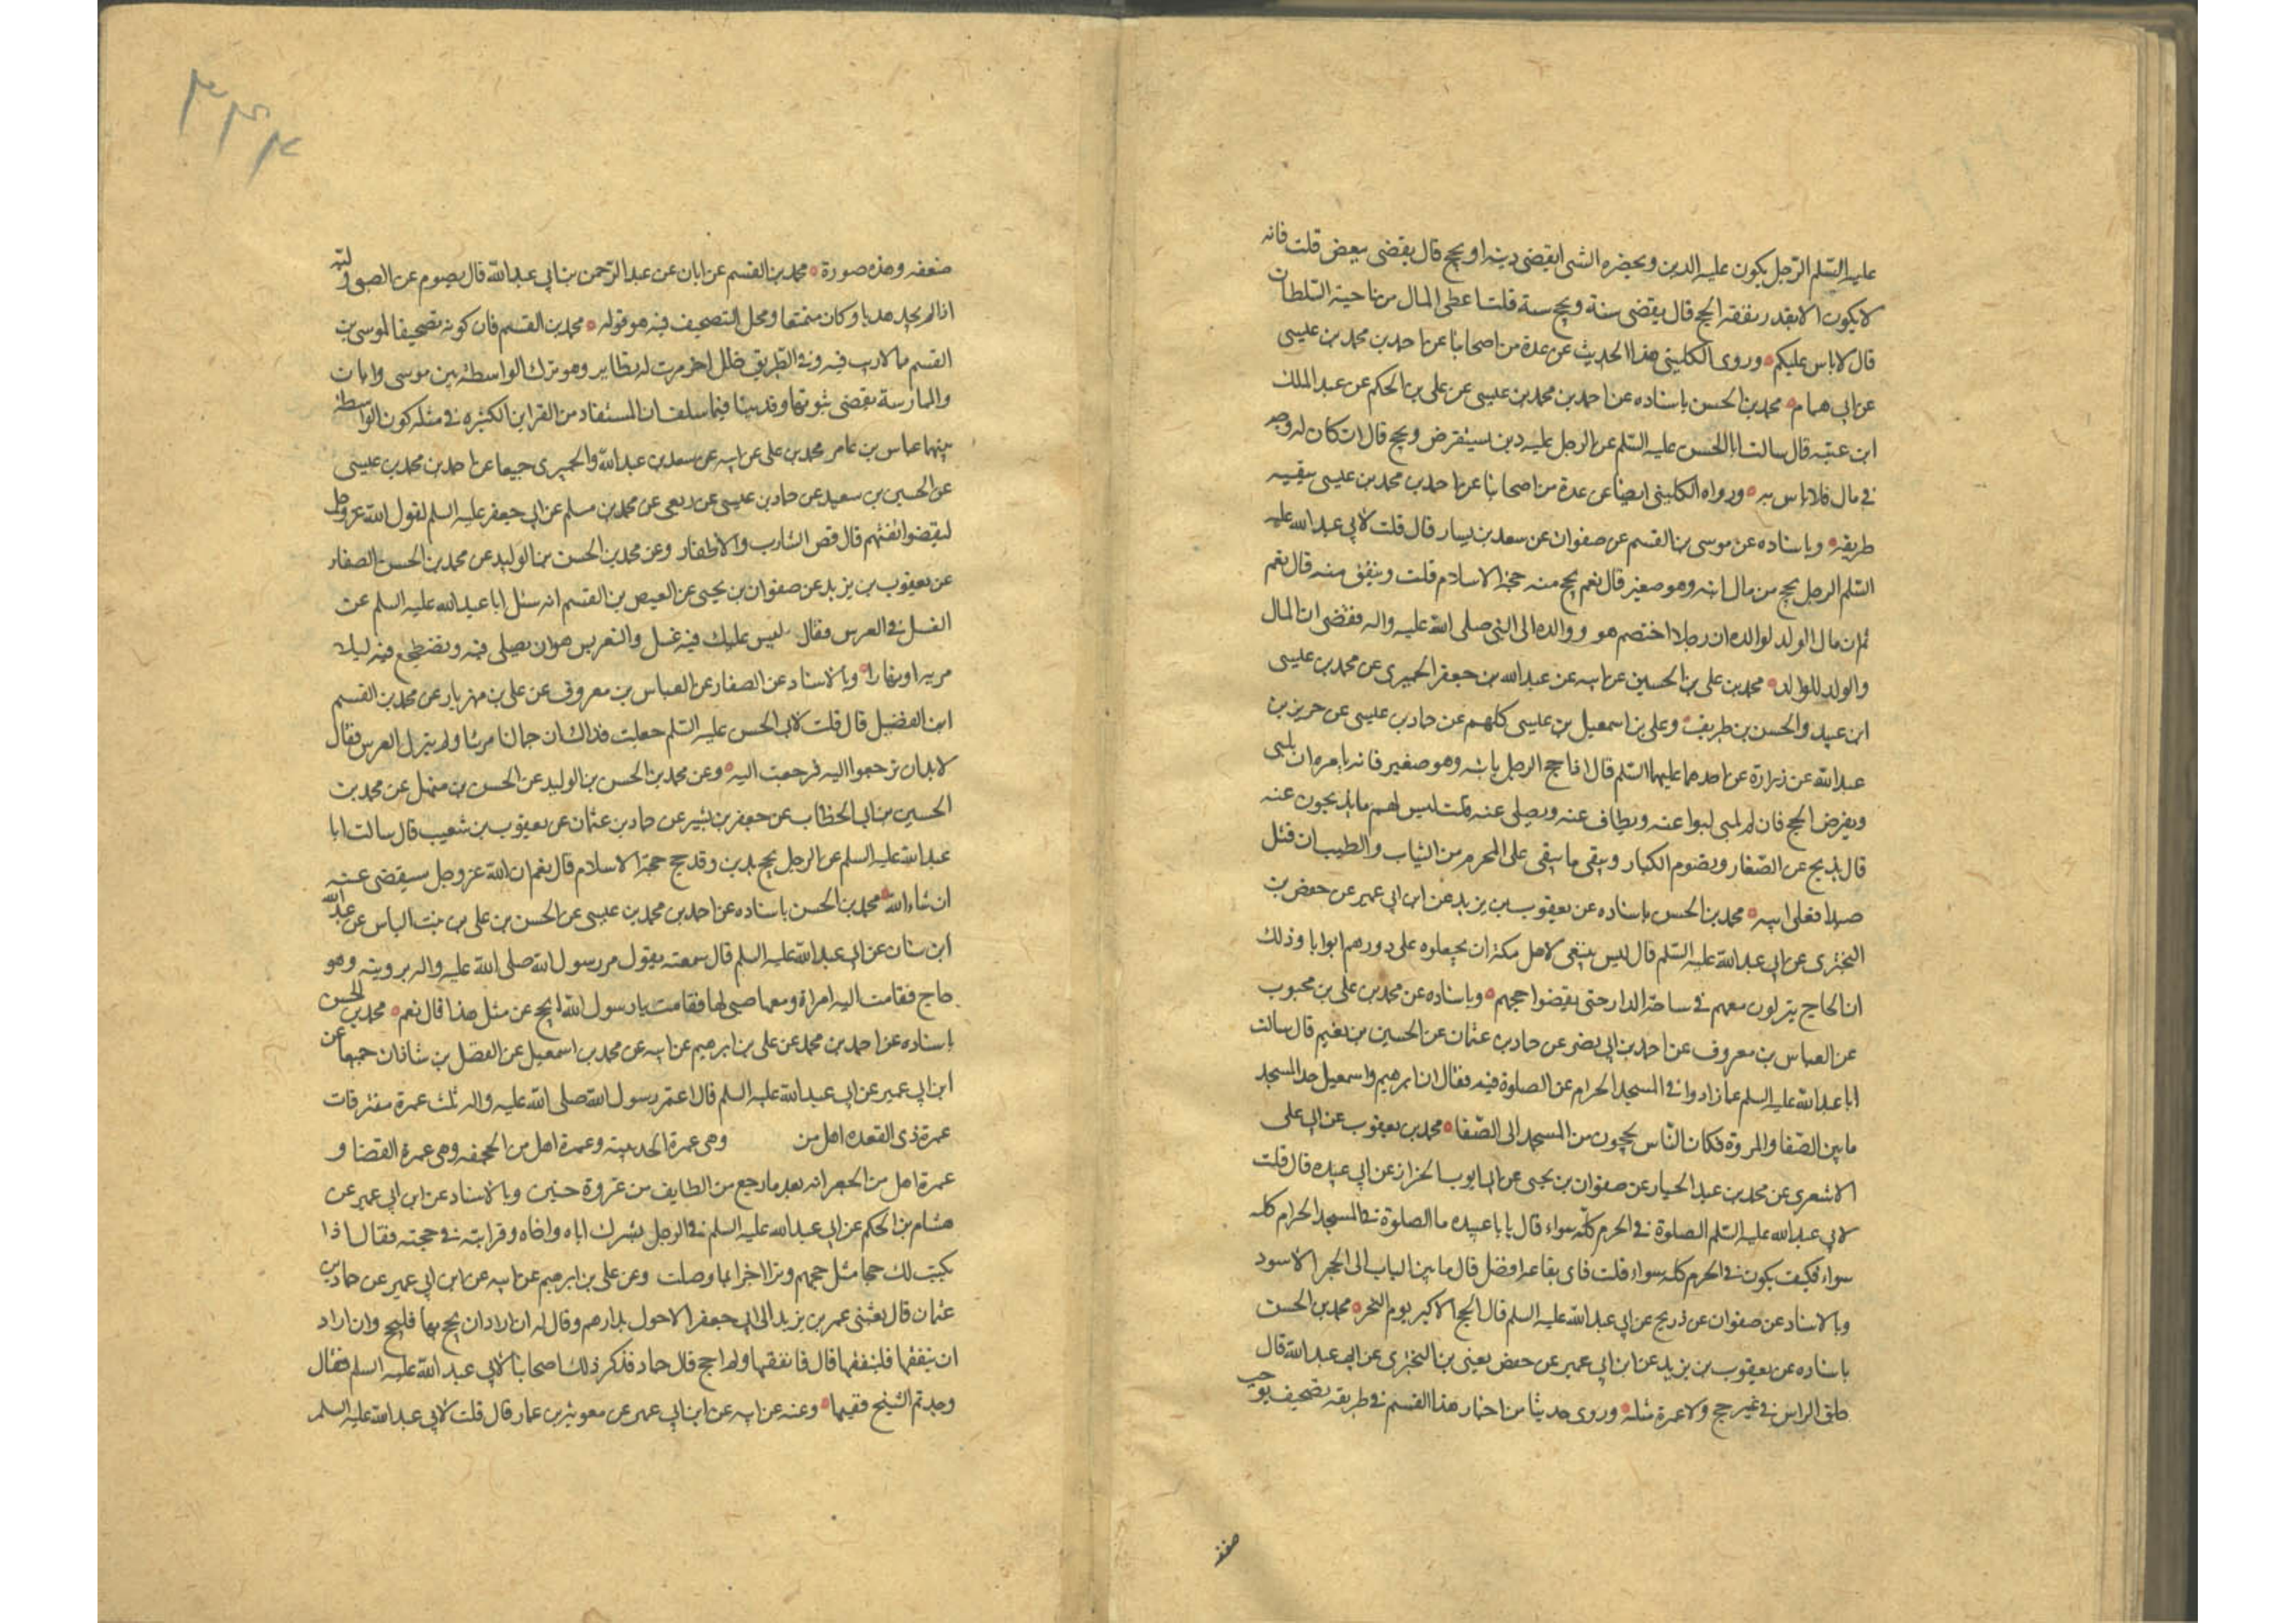 عليه السّلم الرّجل يكون عليه الدين ويحضره الشئ ايقضى دينه او يحج قال يقضى ببعض قلت فانه
لا يكون الا بقدر نفقة الحج قال يقضى سنة ويحج سنة قلت اعطى المال من ناحية السّلطان
قال لا باس عليكم وروى الكلينى هذا الحديث عن عدة من اصحابنا عن احمد بن محمد بن عيسى
عن ابى همام محمد بن الحسن باسناده عن احمد بن محمد بن عيسى عن على بن الحكم عن عبد الملك
ابن عتبه قال سالت ابا الحسن عليه السّلم عن الرجل عليه دين يستقرض ويحج قال ان كان له وجه
فى مال فلا باس به ورواه الكلينى ايضا عن عدة من اصحابنا عن احمد بن محمد بن عيسى ببقيه
طريقه وباسناده عن موسى بن القسم عن صفوان عن سعد بن يسار قال قلت لابى عبد الله عليه
السّلم الرجل يحج من مال ابنه وهو صغير قال نعم يحج منه حجة الاسلام قلت وينفق منه قال نعم
ثم ان مال الولد لوالده ان رجلا اختصم هو ووالده الى النبى صلى الله عليه واله فقضى ان المال
والولد للوالد محمد بن على بن الحسين عن ابيه عن عبد الله بن جعفر الحميرى عن محمد بن عيسى
ابن عبيد والحسن بن طريف وعلى بن اسمعيل بن عيسى كلهم عن حماد بن عيسى عن حريز بن
عبد الله عن زرارة عن احدهما عليهما السّلم قال اذا حج الرجل بابنه وهو صغير فانه يامره ان يلبى
ويفرض الحج فان لم يلبى لبوا عنه ويطاف عنه ويصلى عنه قلت ليس لهم ما يذبحون عنه
قال يذبح عن الصّغار ويصوم الكبار ويتقى ما يتقى على المحرم من الثياب والطيب ان قتل
صيدا فعلى ابيه محمد بن الحسن باسناده عن يعقوب بن يزيد عن ابن ابى عمير عن حفص بن
البخترى عن ابى عبد الله عليه السّلم قال ليس ينبغى لاهل مكة ان يجعلوه على دورهم ابوابا وذلك
ان الحاج ينزلون معهم فى ساحة الدار حتى يقضوا حجهم وباسناده عن محمد بن على بن محبوب
عن العباس بن معروف عن احمد بن ابى نصر عن حماد بن عثمان عن الحسين بن نعيم قال سالت
ابا عبد الله عليه السلم عما زادوا فى المسجد الحرام عن الصلوة فيه فقال ان ابرهيم واسمعيل حدا المسجد
ما بين الصّفا والمروة فكان النّاس يحجون من المسجد الى الصّفا محمد بن يعقوب عن ابى على
الاشعرى عن محمد بن عبد الجبار عن صفوان بن يحيى عن ابى ايوب الخزاز عن ابى عبيده قال قلت
لابى عبد الله عليه السّلم الصلوة فى الحرم كلّه سواء قال يا با عبيده ما الصلوة فى المسجد الحرام كله
سواء فكيف يكون فى الحرم كله سواء قلت فاى بقاعه افضل قال ما بين الباب الى الحجر الاسود
وبالاسناد عن صفوان عن ذريح عن ابى عبد الله عليه السلم قال الحج الاكبر يوم النحر محمد بن الحسن
باسناده عن يعقوب بن يزيد عن ابن ابى عمير عن حفص يعنى بن البخترى عن ابى عبد الله قال
حلق الراس فى غير حج ولا عمرة مثله وروى حديثا من اخبار هذا القسم فى طريقه تصحيف يوجب
ضعفه
٣٤٤
ضعفه وهذه صورة محمد بن القسم عن ابان عن عبد الرّحمن بن ابى عبد الله قال يصوم عن الصبى وليّه
اذا لم يجد هديا وكان متمتعا ومحل التصحيف فيه هو قوله محمد بن القسم فان كونه تصحيفا لموسى بن
القسم مما لا ريب فيه وفى الطريق خلل اخر مرت له نظاير وهو ترك الواسطة بين موسى وابان
والممارسة تقضى بثبوتها وقد بينا فيما سلف ان المستفاد من القراين الكثيره فى مثله كون الواسطة
بينهما عباس بن عامر محمد بن على عن ابيه عن سعد بن عبد الله والحميرى جميعا عن احمد بن محمد بن عيسى
عن الحسين بن سعيد عن حماد بن عيسى عن ربعى عن محمد بن مسلم عن ابى جعفر عليه السلم لقول الله عز وجل
ليقضوا تفثهم قال قص الشارب والاظفار وعن محمد بن الحسن بن الوليد عن محمد بن الحسن الصفار
عن يعقوب بن يزيد عن صفوان بن يحيى عن العيص بن القسم انه سئل ابا عبد الله عليه السلم عن
الغسل فى العرس فقال ليس عليك فيه غسل والتعريس هو ان يصلى فيه ويضطجع فيه ليلا
مر به او نهارا وبالاسناد عن الصفار عن العباس بن معروف عن على بن مهزيار عن محمد بن القسم
ابن الفضيل قال قلت لابى الحسن عليه السّلم جعلت فداك ان جمالنا مر بنا ولم ينزل العرس فقال
لا بد ان ترجعوا اليه فرجعت اليه وعن محمد بن الحسن بن الوليد عن الحسن بن متيل عن محمد بن
الحسين بن ابى الخطاب عن جعفر بن بشير عن حماد بن عثمان عن يعقوب بن شعيب قال سالت ابا
عبد الله عليه السلم عن الرجل يحج بدين وقد حج حجة الاسلام قال نعم ان الله عز وجل سيقضى عنه
ان شاء الله محمد بن الحسن باسناده عن احمد بن محمد بن عيسى عن الحسن بن على بن بنت الياس عن عبد الله
ابن سنان عن ابى عبد الله عليه السلم قال سمعته يقول مر رسول الله صلى الله عليه واله برويثه وهو
حاج فقامت اليه امراة ومعها صبى لها فقامت يا رسول الله ايحج عن مثل هذا قال نعم محمد بن الحسن
باسناده عن احمد بن محمد عن على بن ابرهيم عن ابيه عن محمد بن اسمعيل عن الفضل بن شاذان جميعا عن
ابن ابى عمير عن ابى عبد الله عليه السلم قال اعتمر رسول الله صلى الله عليه واله ثلث عمرة مفترقات
عمرة ذى القعده اهل من وهى عمرة الحديبيه وعمرة اهل من الجحفه وهى عمرة القضا و
عمرة اهل من الجعرانه بعد ما رجع من الطايف من غزوة حنين وبالاسناد عن ابن ابى عمير عن
هشام بن الحكم عن ابى عبد الله عليه السلم فى الرجل يشرك اباه واخاه وقرابته فى حجته فقال اذا
يكتب لك حجا مثل حجهم وتزاد اجرا بما وصلت وعن على بن ابرهيم عن ابيه عن ابن ابى عمير عن حماد بن
عثمان قال بعثنى عمر بن يزيد الى ابى جعفر الاحول بدارهم وقال له ان اراد ان يحج بها فليحج وان اراد
ان ينفقها فلينفقها قال فانفقها ولم احج قال حماد فذكر ذلك اصحابنا لابى عبد الله عليه السلم فقال
وجدتم الشيخ فقيها وعنه عن ابيه عن ابن ابى عمير عن معوية بن عمار قال قلت لابى عبد الله عليه السلم